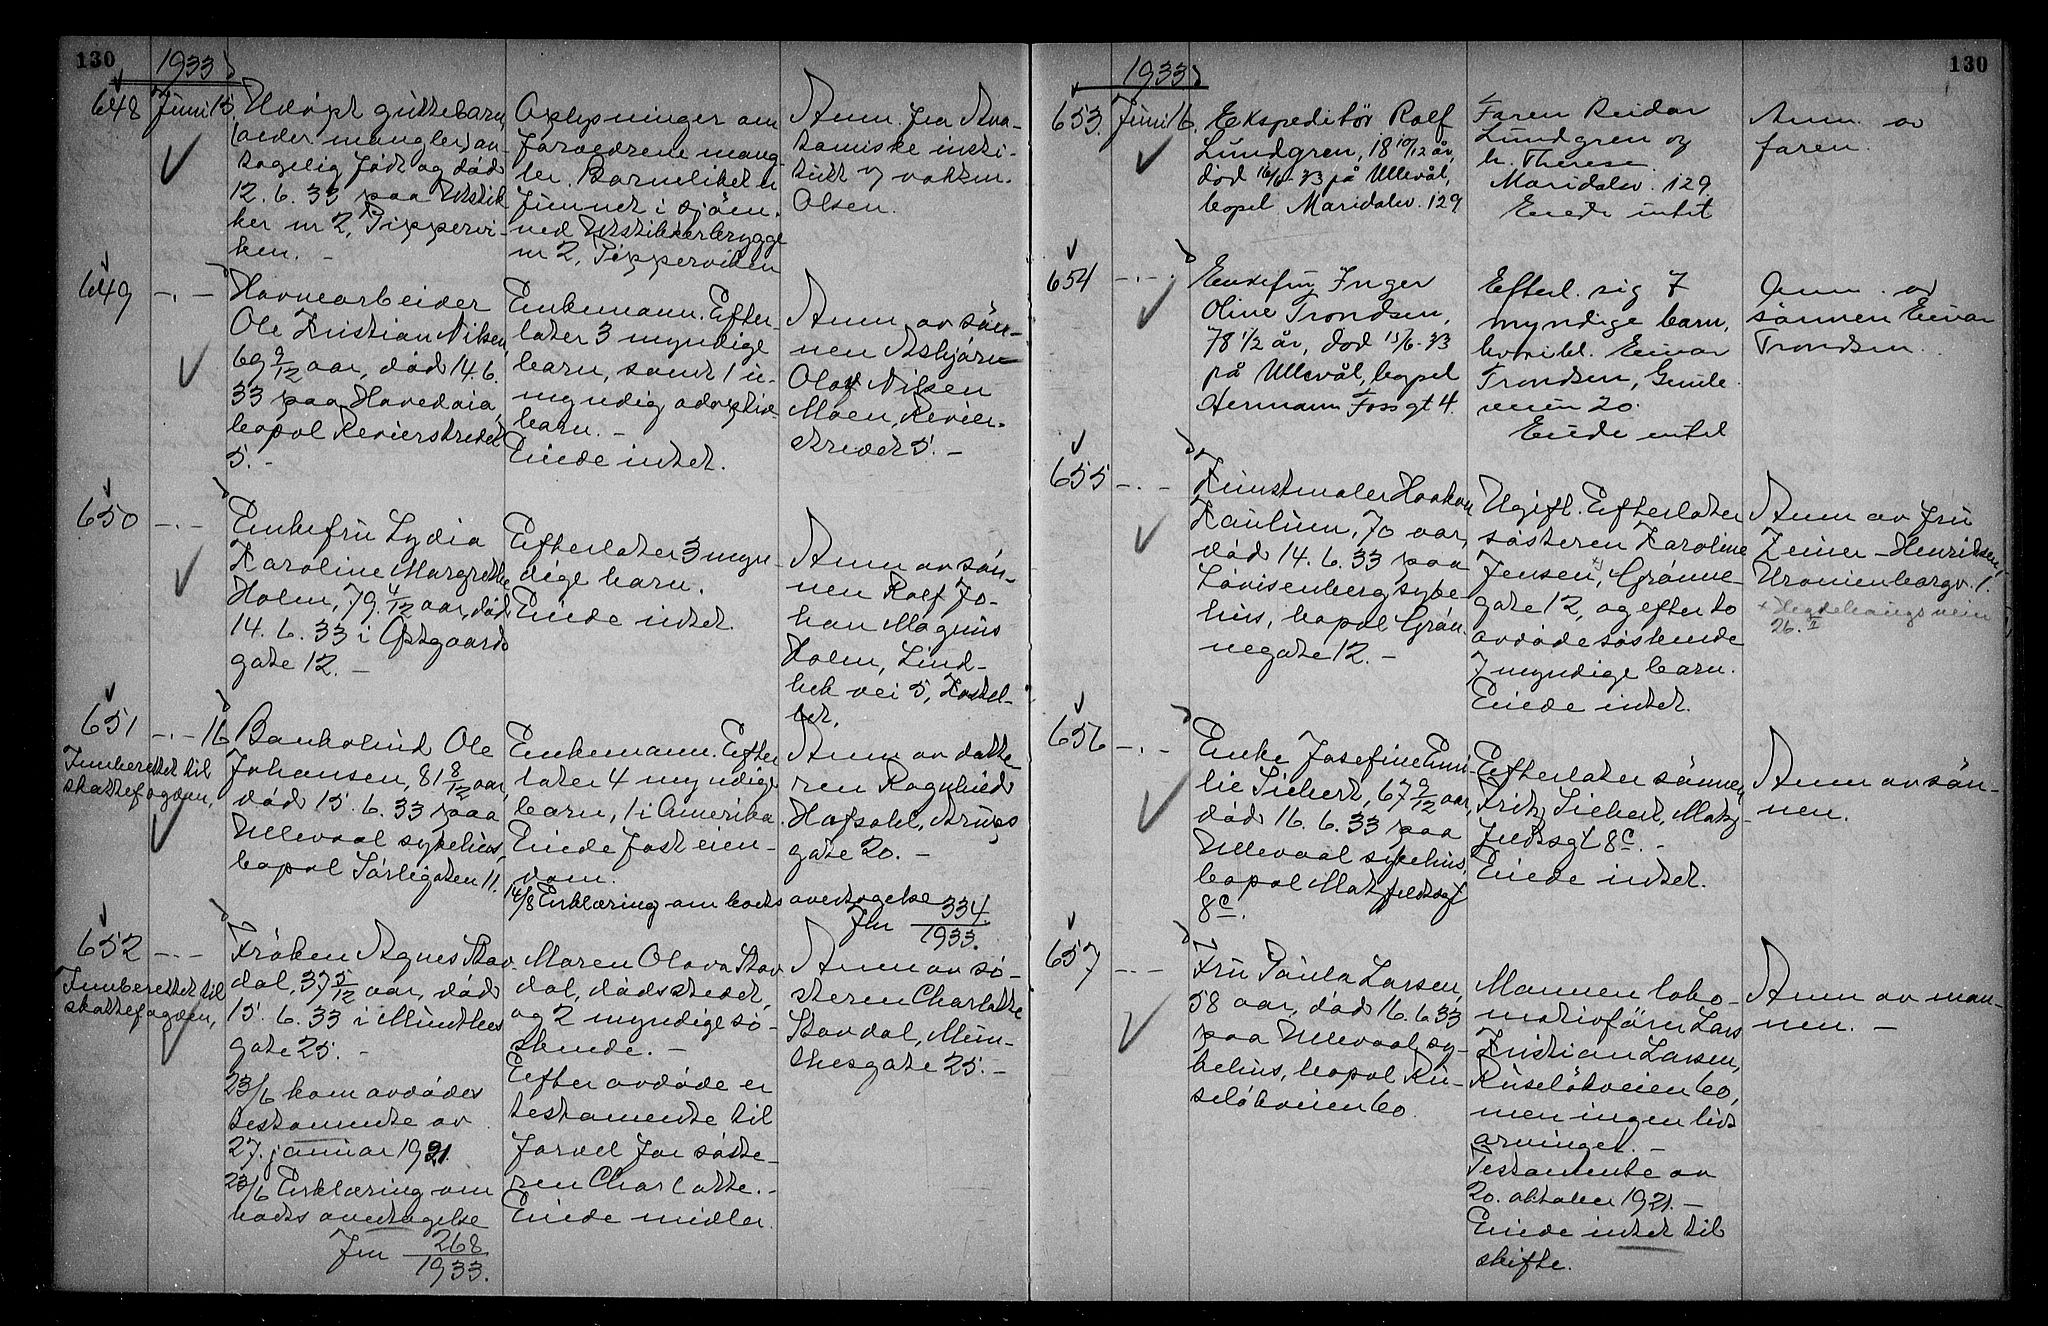 130
1933
648
Juni 15.
Udöpt guttebarn,
(alder mangler) an-
tagelig født og død
12. 6. 33 paa Utstik
ker nr 2, Pippervi-
ken. -
Oplysninger om
forældrene mang-
ler. Barneliket er
funnet i sjøen
ved Utstikkerbrygge
nr 2, Pipperviken
Anm. fra Ana-
tomiske insti-
tutt v vaktm.
Olsen.
649
-.-
Havnearbeider
Ole Kristian Nilsen,
69 9/12 aar, død 14. 6.
33 paa Hovedøia,
bopæl Revierstredet
5. -
Enkemann. Efter-
later 3 myndige
barn, samt 1 u-
myndig adoptiv-
barn. -
Eiede intet.
Anm. av søn-
nen Asbjørn
Olaf Nilsen
Moen, Revier-
stredet 5. -
650
-.-
Enkefru Lydia
Karoline Margrethe
Holm, 79 4/12 aar, død
14. 6. 33 i Østgaards
gate 12. -
Efterlater 3 myn-
dige barn.
Eiede intet.
Anm av søn-
nen Rolf Jo-
han Magnus
Holm, Lind-
bek vei 5,
651
-.- 16
Innberettet til
skattefogden,
Bankbud Ole
Johansen, 81 8/12 aar,
død 15. 6. 33 paa
Ullevaal sykehus,
bopæl Sørligaten 11.
Enkemann. Efter
later 4 myndige
barn, 1 i Amerika.
Eiede fast eien-
dom.
14/8 Erklæring om boets overtagelse
Jnr 334/1933.
Anm av datte
ren Ragnhild
Hofdahl,
gate 20. -
652
-.-
Innberettet til
skattefogden,
Frøken Agnes Stav
dal, 37 5/12 aar, død
15. 6. 33 i Munthes
gate 25. -
23/6 kom avdødes
testamente av
27. januar 1921.
23/6 Erklæring om
boets overtagelse
Jnr 268/1933.
Maren Olava Stav
dal, dødsstedet,
og 2 myndige sø-
skende. -
Efter avdøde er
testamente til
fordel for søste-
ren Charlotte. -
Eiede midler.
Anm av sø-
steren Charlotte
Stavdal, Mun-
thesgate 25. -
130
1933
653.
Juni 16.
Ekspeditør Rolf
Lundgren, 18 10/12 år,
død 16/6-33 på Ullevål,
bopel Maridalsv. 129
Faren Reidar
Lundgren og
h. Therese
Maridalsv. 129
Eiede intet
Anm. av
faren.
654
-.-
Enkefru Inger
Oline Trondsen,
78 1/2 år, død 15/6-33
på Ullevål, bopel
Hermann Fossgt 4.
Efterl. sig 7
myndige barn,
hvoribl. Einar
Trondsen,
veien 20.
Eiede intet
Anm. av
sønnen Einar
Trondsen.
655
-.-
Kunstmaler Haakon
Kaulum, 70 aar,
død 14. 6. 33 paa
Lovisenberg syke
hus, bopæl Grøn-
negate 12. -
Ugift. Efterlater
søsteren Karoline
Jensen, + Grønne-
gate 12, og efter to
avdøde søskende
7 myndige barn.
Eiede intet.
Anm av fru
Zeiner-Henriksen,
Uranienborgv. 1.
+ Hegdehaugsveien
26. II
656
-.-
Enke Josefine Emi-
lie Siebert, 67 9/12 aar,
død 16. 6. 33 paa
Ullevaal sykehus,
bopæl Matzfeldtsgt
8 c.
Efterlater sønnen
Fritz Siebert, Matz-
feldtsgt 8 c. -
Eiede intet.
Anm av søn-
nen.
657
-.-
Fru Paula Larsen,
58 aar, død 16. 6. 33
paa Ullevaal sy-
kehus, bopæl Ru-
seløkveien 60.
Mannen loko-
motivfører Lars
Kristian Larsen,
Ruseløkveien 60,
men ingen livs
arvinger. -
Testamente av
20. oktober 1921. -
Eiede intet til
skifte.
Anm av man-
nen. -